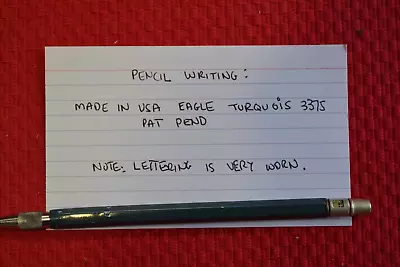 PENCIL WRITING:
MADE IN USA EAGLE TURQUOIS 3375
PAT PEND
NOTE: LETTERING IS VERY WORN.